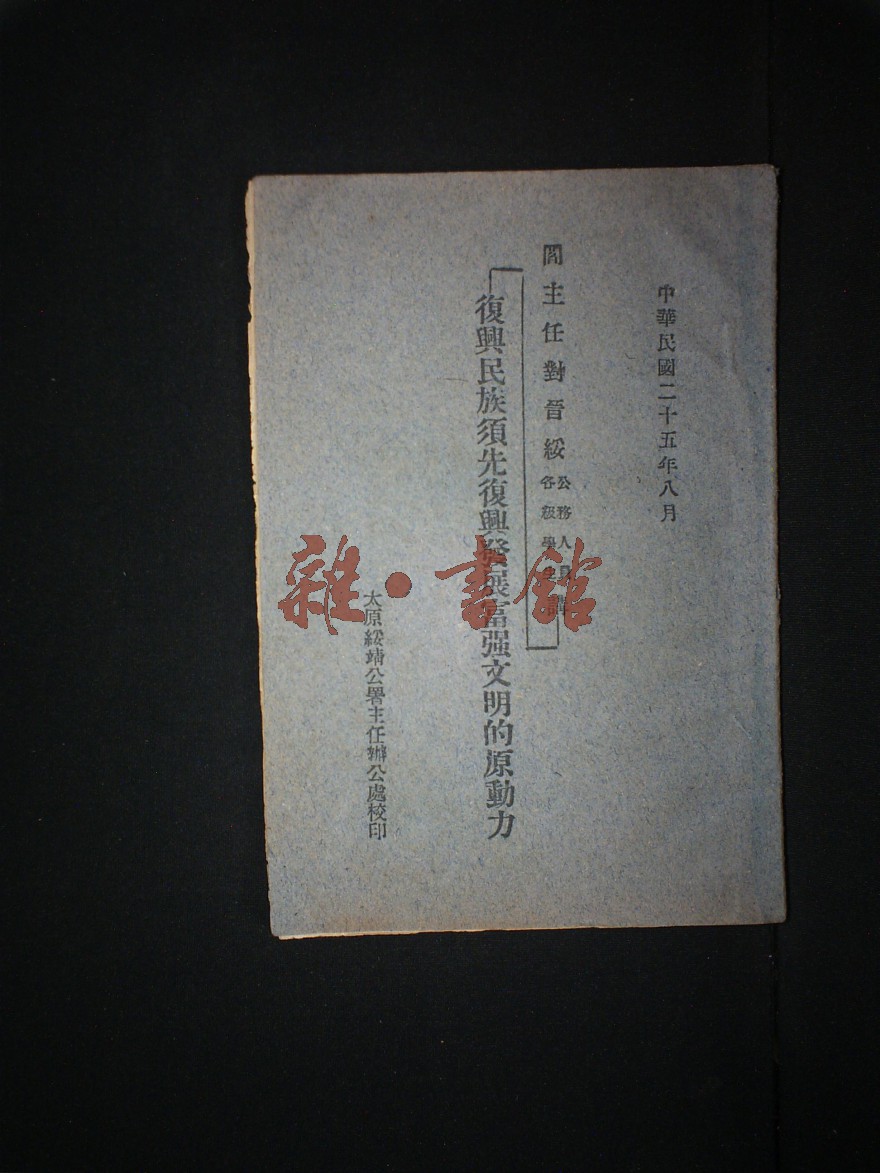 中華民國二十五年八月
閻主任對晉綏公務人員各級學生講
復興民族須先復興發展富强文明的原動力
太原綏靖公署主任辦公處校印
雜·書館